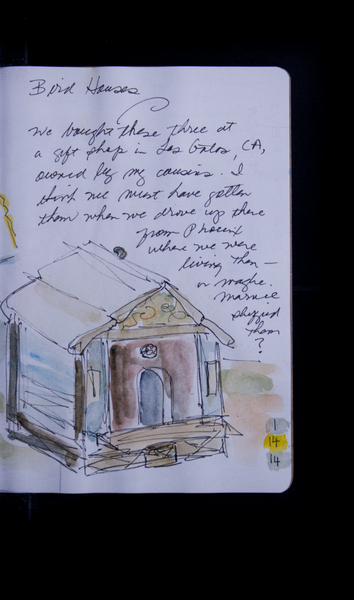 Bird Houses
We bought these three at
a gift shop in Los Gatos, CA,
owned by my cousins. I
think we must have gotten
them when we drove up there
from Phoenix
where we were
living then —
or maybe
Marnie
shipped
them
?
1
14
14